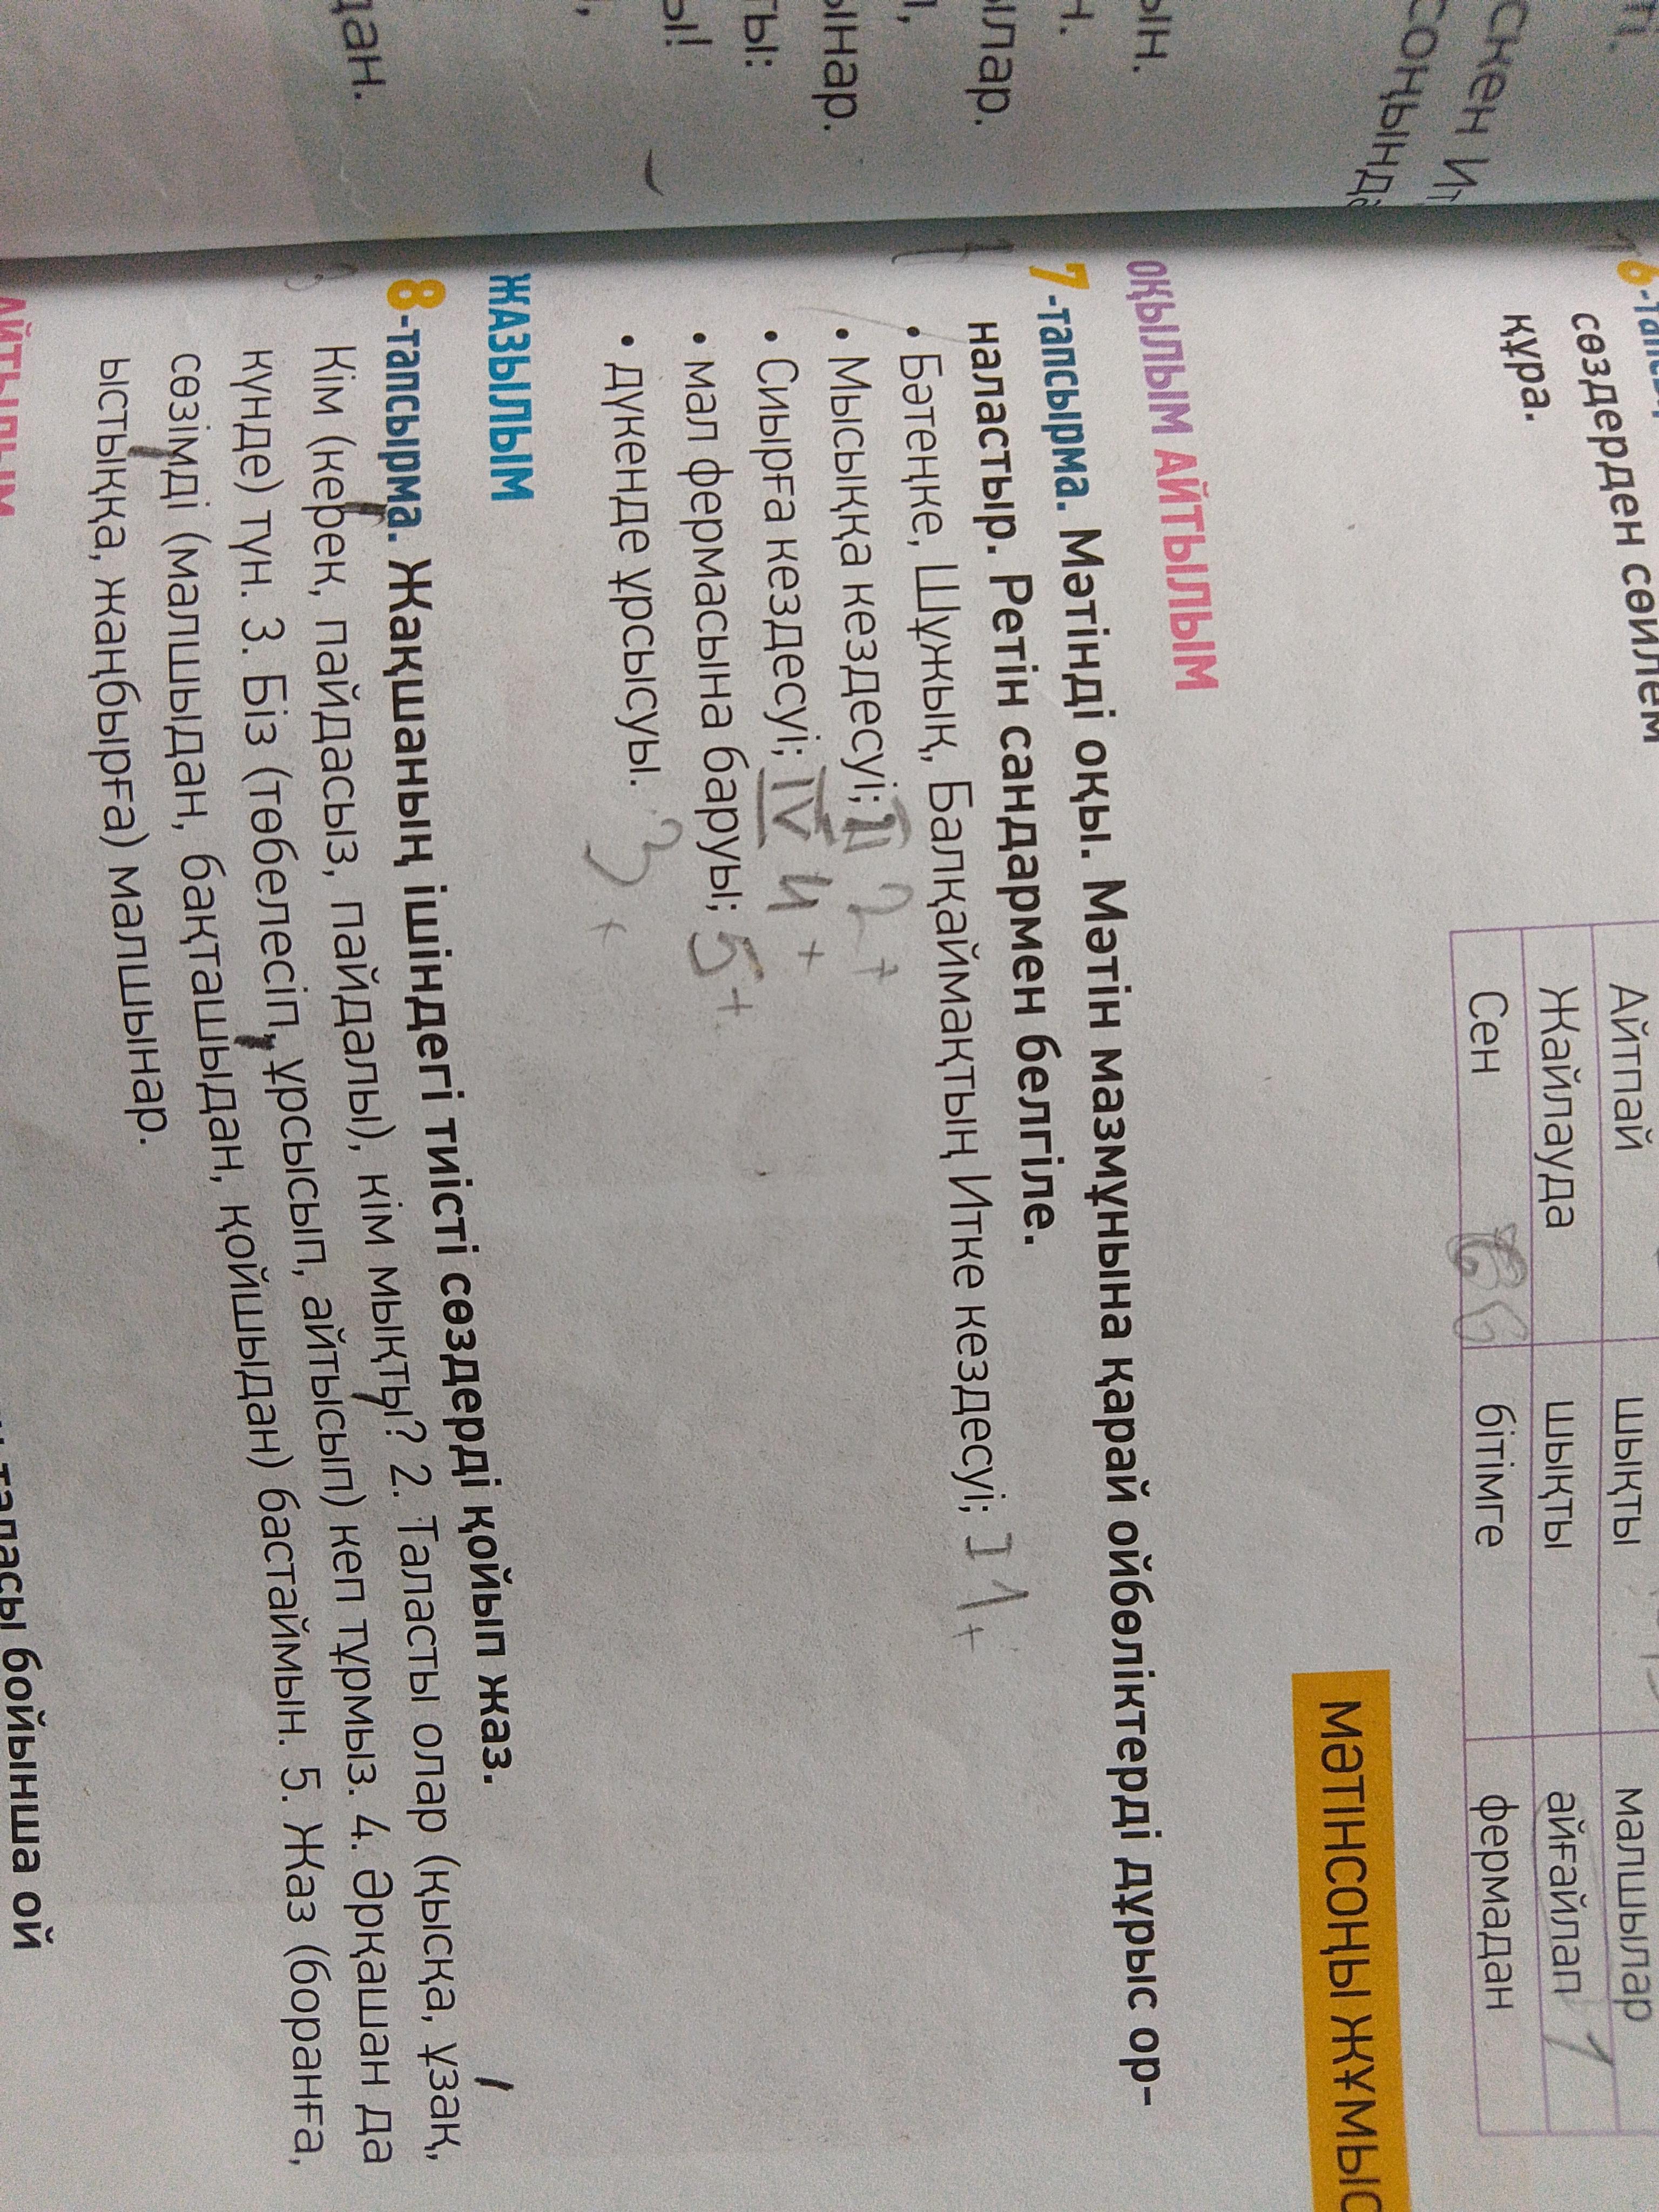 скен Ит
соңында
ын.
н.
ылар.
ынар.
ты:
ы!
дан.
сөздерден сөйлем
құра.
Айтпай шықты малшылар
Жайлауда шықты айғайлап 1
Сен 6 бітімге фермадан
МӘТІНСОҢЫ ЖҰМЫС
ОҚЫЛЫМ АЙТЫЛЫМ
7-тапсырма. Мәтінді оқы. Мәтін мазмұнына қарай ойбөліктерді дұрыс ор-
наластыр. Ретін сандармен белгіле.
• Бәтеңке, Шұжық, Балқаймақтың Итке кездесуі; 1 1 +
• Мысыққа кездесуі; II 2 +
• Сиырға кездесуі; IV 4 +
• мал фермасына баруы; 5 +
• дүкенде ұрысуы. 3 +
ЖАЗЫЛЫМ
8-тапсырма. Жақшаның ішіндегі тиісті сөздерді қойып жаз.
Кім (керек, пайдасыз, пайдалы), кім мықты? 2. Таласты олар (қысқа, ұзақ,
күнде) түн. 3. Біз (төбелесіп, ұрсысып, айтысып) кеп тұрмыз. 4. Әрқашан да
сөзімді (малшыдан, бақташыдан, қойшыдан) бастаймын. 5. Жаз (боранға,
ыстыққа, жаңбырға) малшынар.
АЙТЫЛЫМ
таласы бойынша ой